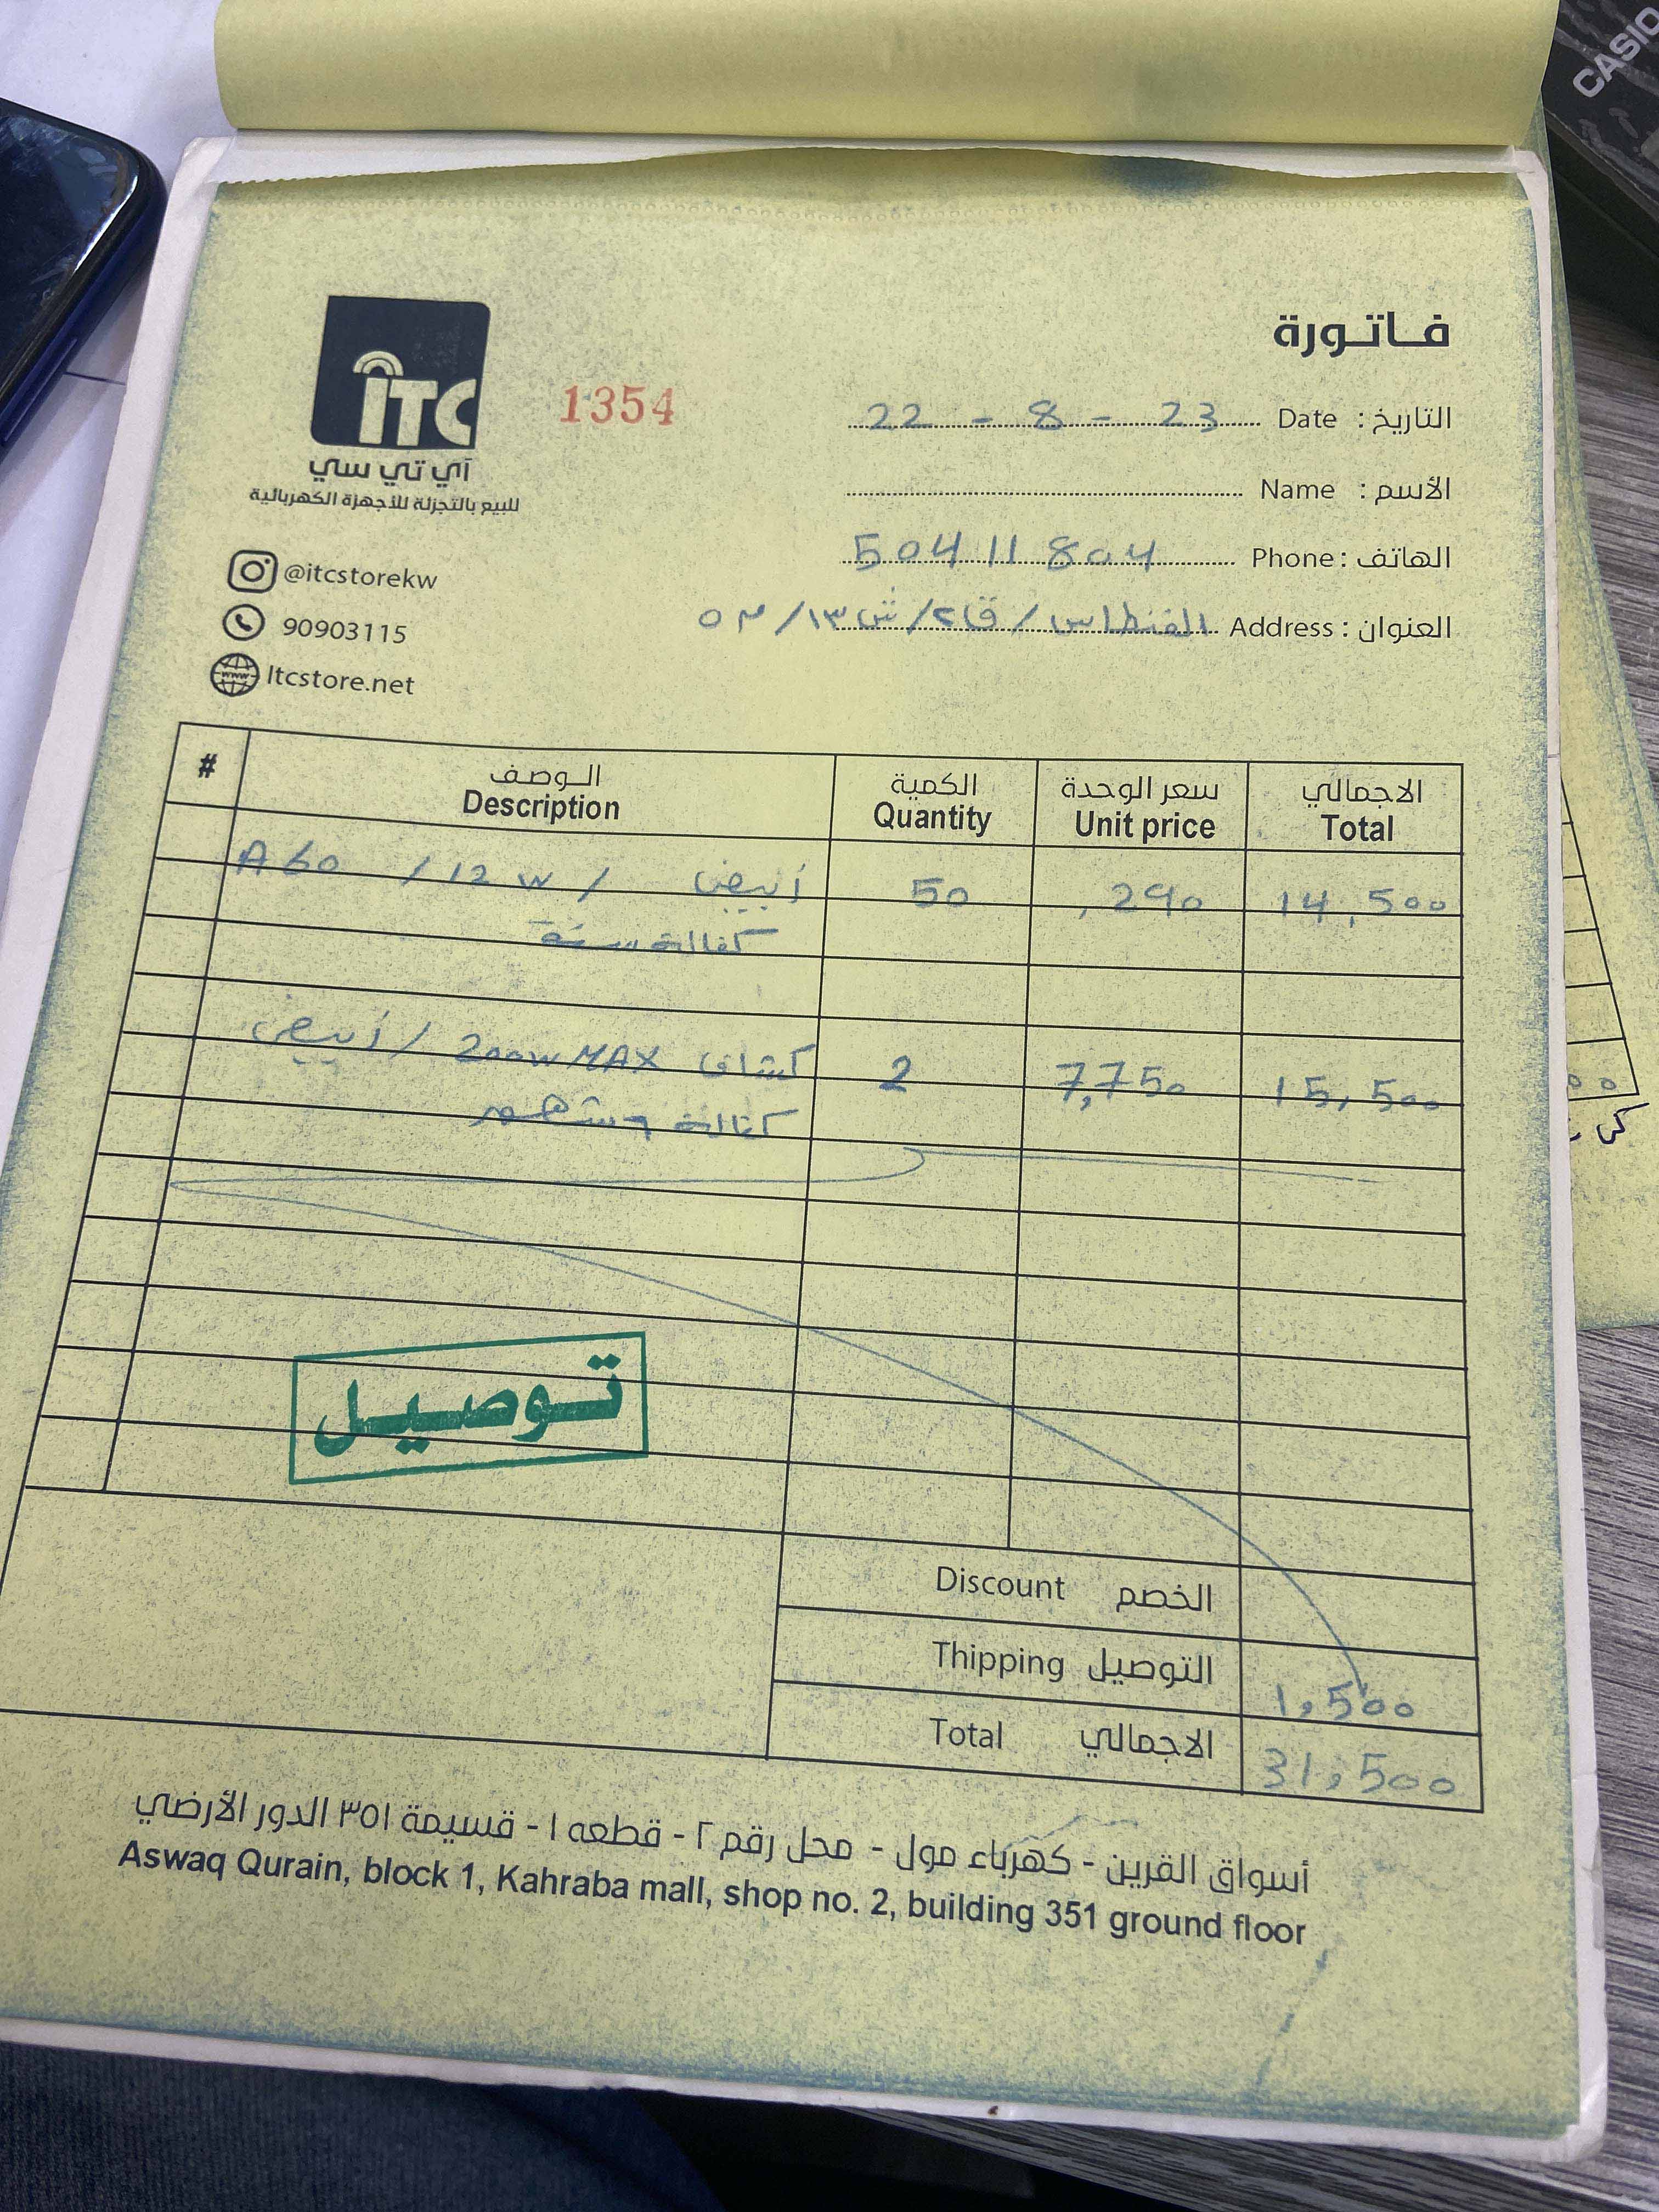 CASIO
فاتورة
iTC
1354
آي تي سي
للبيع بالتجزئة للأجهزة الكهربائية
التاريخ : Date 22 - 8 - 23
الأسم : Name
الهاتف : Phone 50411804
العنوان : Address الفنطاس / ق٢ / ش١٣ / م٥
@itcstorekw
90903115
Itcstore.net
# الوصف الكمية سعر الوحدة الاجمالي
Description Quantity Unit price Total
A60 / 12 W / أبيض 50 ,290 14,500
كفالة سنة
كشاف 200W MAX / أبيض 2 7,750 15,500
كفالة ٦ شهور
توصيل
Discount الخصم
Thipping التوصيل 1,500
Total الاجمالي 31,500
أسواق القرين - كهرباء مول - محل رقم ٢ - قطعه ١ - قسيمة ٣٥١ الدور الأرضي
Aswaq Qurain, block 1, Kahraba mall, shop no. 2, building 351 ground floor